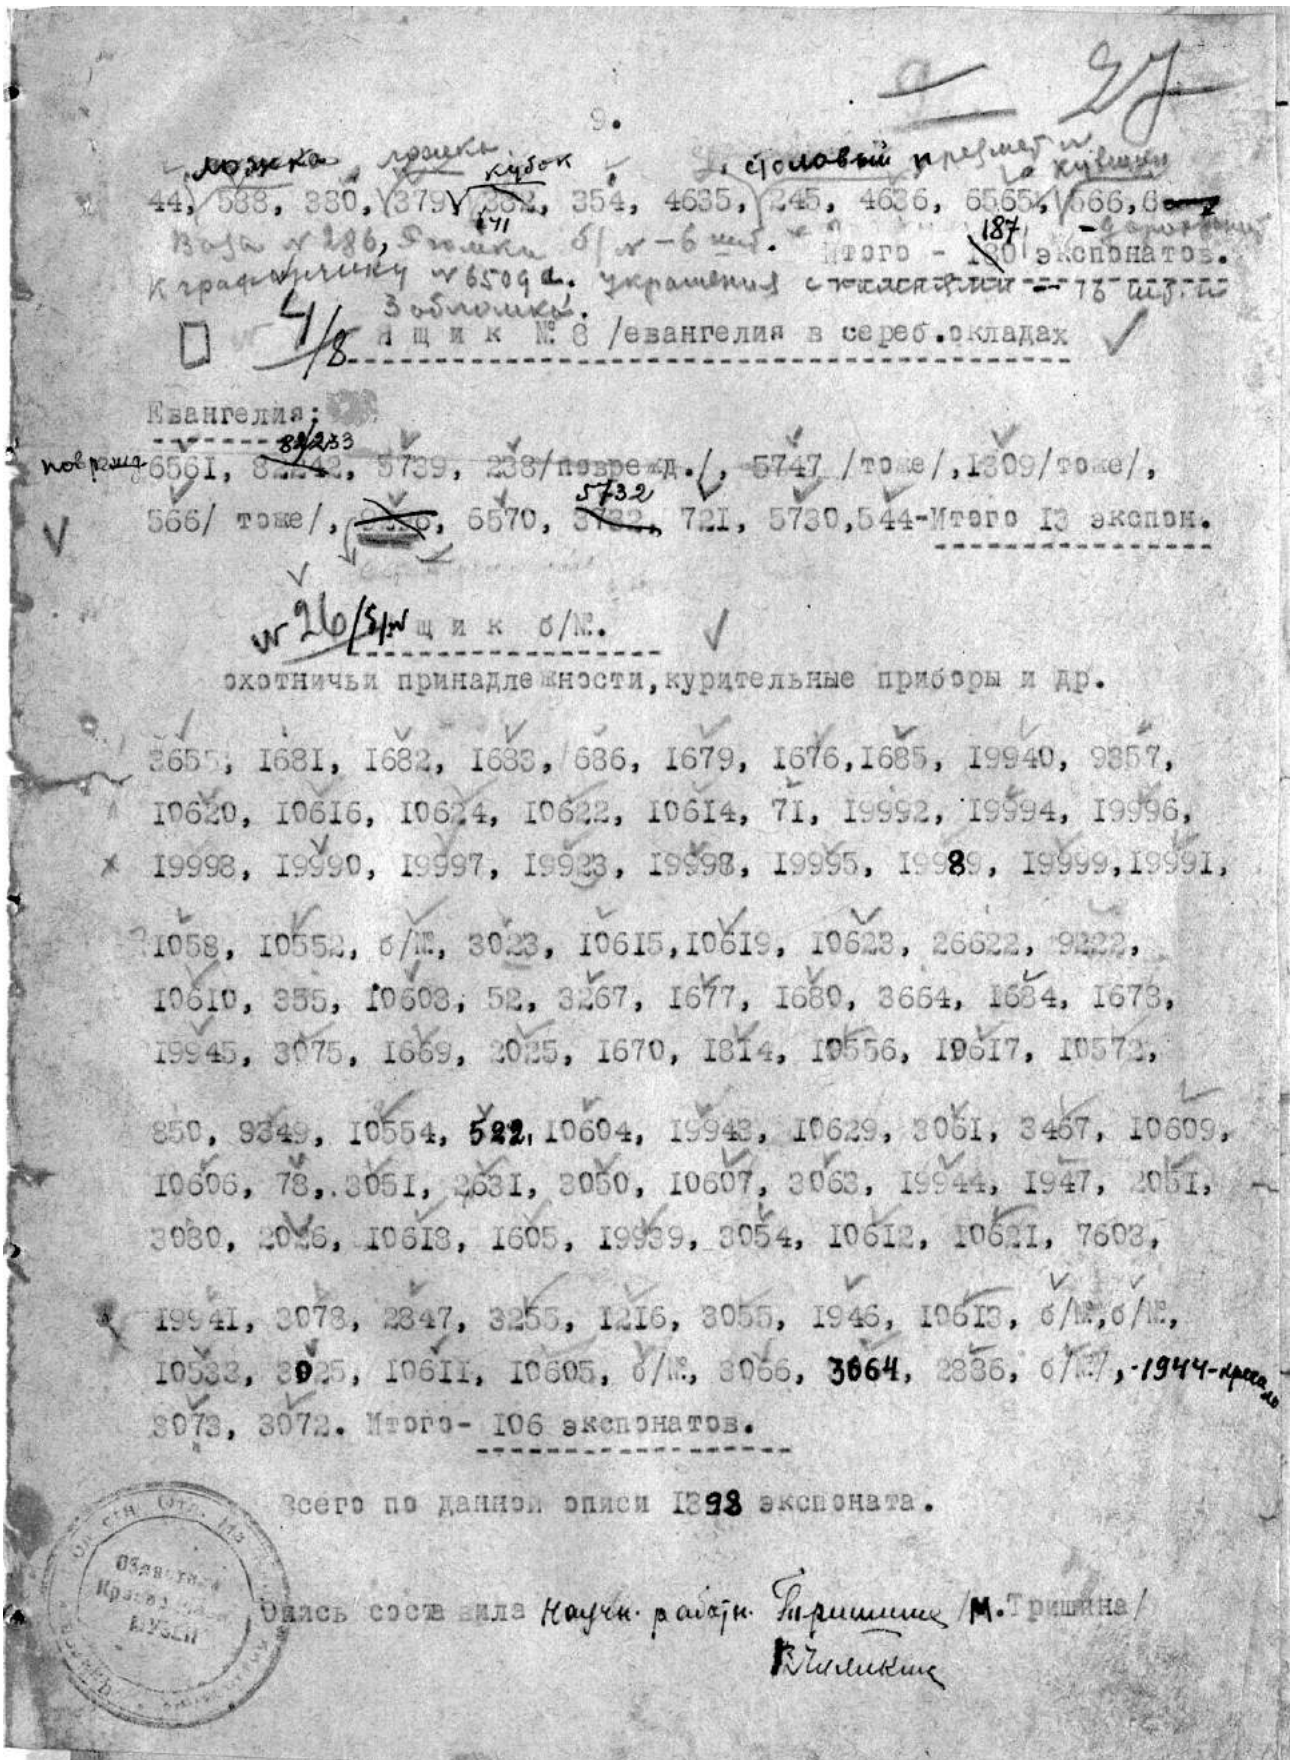 27
9.
ложка ложка кубок столовый предмет кувшин
44, 588, 380, 379, 382, 354, 4635, 245, 4636, 6565, 566,
141 187
Ваза № 286, Рюмка б/№ - 6 шт. Итого - 180 экспонатов.
К графинчику № 6509 а. украшения с камнями - 13 шт. и
3 обломка.
4/8 Ящик № 8 /евангелия в сереб.окладах
Евангелия:
82233
поврежд 6561, 82242, 5739, 238/поврежд./, 5747 /тоже/,1309/тоже/,
5732
566/ тоже/, 6570, 3732, 721, 5730,544-Итого 13 экспон.
№ 26/б/№ щик б/№.
охотничьи принадлежности,курительные приборы и др.
3655, 1681, 1682, 1683, 686, 1679, 1676,1685, 19940, 9357,
10620, 10616, 10624, 10622, 10614, 71, 19992, 19994, 19996,
19998, 19990, 19997, 19923, 19998, 19995, 19989, 19999,19991,
1058, 10552, б/№, 3023, 10615,10619, 10623, 26622, 9222,
10610, 355, 10608, 52, 3267, 1677, 1680, 3664, 1684, 1678,
19945, 3075, 1669, 2025, 1670, 1814, 10556, 10617, 10572,
850, 9349, 10554, 522, 10604, 19943, 10629, 3061, 3467, 10609,
10606, 78, 3051, 2631, 3050, 10607, 3063, 19944, 1947, 2051,
3080, 2026, 10618, 1605, 19939, 3054, 10612, 10621, 7603,
19941, 3078, 2847, 3255, 1216, 3055, 1946, 10613, б/№,б/№,
10533, 3025, 10611, 10605, б/№, 3066, 3064, 2836, б/№/, -1944-кресало
3073, 3072. Итого- 106 экспонатов.
Всего по данной описи 1398 экспоната.
Областной
Краеведческий
МУЗЕЙ
Опись составила Научн. работн. Тришина /М.Тришина/